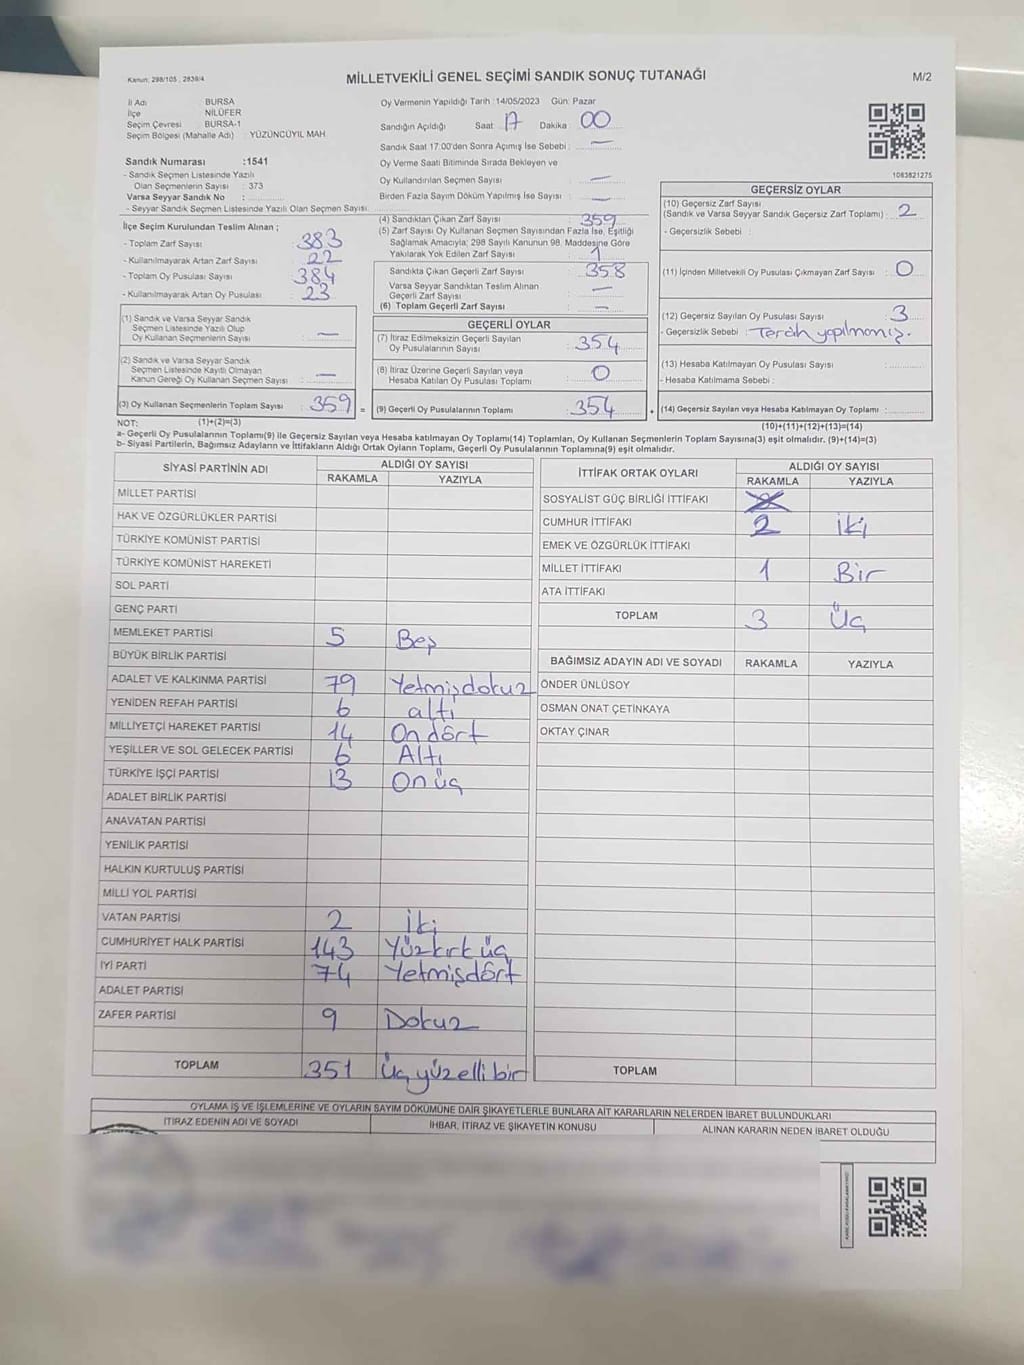 Kanun: 298/105 ; 2839/4
MİLLETVEKİLİ GENEL SEÇİMİ SANDIK SONUÇ TUTANAĞI
M/2
İl Adı BURSA
İlçe NİLÜFER
Seçim Çevresi BURSA-1
Seçim Bölgesi (Mahalle Adı) : YÜZÜNCÜYIL MAH
Sandık Numarası :1541
- Sandık Seçmen Listesinde Yazılı
Olan Seçmenlerin Sayısı : 373
Varsa Seyyar Sandık No :
- Seyyar Sandık Seçmen Listesinde Yazılı Olan Seçmen Sayısı:
Oy Vermenin Yapıldığı Tarih :14/05/2023 Gün: Pazar
Sandığın Açıldığı Saat : 17 Dakika : 00
Sandık Saat 17.00'den Sonra Açımış İse Sebebi : —
Oy Verme Saati Bitiminde Sırada Bekleyen ve
Oy Kullandırılan Seçmen Sayısı : —
Birden Fazla Sayım Döküm Yapılmış İse Sayısı : —
1083821275
İlçe Seçim Kurulundan Teslim Alınan ;
- Toplam Zarf Sayısı : 383
- Kullanılmayarak Artan Zarf Sayısı : 22
- Toplam Oy Pusulası Sayısı : 384
- Kullanılmayarak Artan Oy Pusulası : 23
(1) Sandık ve Varsa Seyyar Sandık
Seçmen Listesinde Yazılı Olup
Oy Kullanan Seçmen Sayısı : —
(2) Sandık ve Varsa Seyyar Sandık
Seçmen Listesinde Kayıtlı Olmayan
Kanun Gereği Oy Kullanan Seçmen Sayısı : —
(3) Oy Kullanan Seçmenlerin Toplam Sayısı : 359
(4) Sandıktan Çıkan Zarf Sayısı : 359
(5) Zarf Sayısı Oy Kullanan Seçmen Sayısından Fazla İse, Eşitliği
Sağlamak Amacıyla; 298 Sayılı Kanunun 98. Maddesine Göre
Yakılarak Yok Edilen Zarf Sayısı : 1
Sandıkta Çıkan Geçerli Zarf Sayısı : 358
Varsa Seyyar Sandıktan Teslim Alınan
Geçerli Zarf Sayısı : —
(6) Toplam Geçerli Zarf Sayısı : —
GEÇERLİ OYLAR
(7) İtiraz Edilmeksizin Geçerli Sayılan
Oy Pusulalarının Sayısı : 354
(8) İtiraz Üzerine Geçerli Sayılan veya
Hesaba Katılan Oy Pusulası Toplamı : 0
= (9) Geçerli Oy Pusulalarının Toplamı : 354
GEÇERSİZ OYLAR
(10) Geçersiz Zarf Sayısı
(Sandık ve Varsa Seyyar Sandık Geçersiz Zarf Toplamı) : 2
- Geçersizlik Sebebi :
(11) İçinden Milletvekili Oy Pusulası Çıkmayan Zarf Sayısı : 0
(12) Geçersiz Sayılan Oy Pusulası Sayısı : 3
- Geçersizlik Sebebi : Tercih yapılmamış.
(13) Hesaba Katılmayan Oy Pusulası Sayısı :
- Hesaba Katılmama Sebebi :
+ (14) Geçersiz Sayılan veya Hesaba Katılmayan Oy Toplamı :
NOT: (1)+(2)=(3)
(10)+(11)+(12)+(13)=(14)
a- Geçerli Oy Pusulalarının Toplamı(9) ile Geçersiz Sayılan veya Hesaba katılmayan Oy Toplamı(14) Toplamları, Oy Kullanan Seçmenlerin Toplam Sayısına(3) eşit olmalıdır. (9)+(14)=(3)
b- Siyasi Partilerin, Bağımsız Adayların ve İttifakların Aldığı Ortak Oyların Toplamı, Geçerli Oy Pusulalarının Toplamına(9) eşit olmalıdır.
SİYASİ PARTİNİN ADI ALDIĞI OY SAYISI
RAKAMLA YAZIYLA
MİLLET PARTİSİ
HAK VE ÖZGÜRLÜKLER PARTİSİ
TÜRKİYE KOMÜNİST PARTİSİ
TÜRKİYE KOMÜNİST HAREKETİ
SOL PARTİ
GENÇ PARTİ
MEMLEKET PARTİSİ 5 Beş
BÜYÜK BİRLİK PARTİSİ
ADALET VE KALKINMA PARTİSİ 79 Yetmişdokuz
YENİDEN REFAH PARTİSİ 6 altı
MİLLİYETÇİ HAREKET PARTİSİ 14 On dört
YEŞİLLER VE SOL GELECEK PARTİSİ 6 Altı
TÜRKİYE İŞÇİ PARTİSİ 13 Onüç
ADALET BİRLİK PARTİSİ
ANAVATAN PARTİSİ
YENİLİK PARTİSİ
HALKIN KURTULUŞ PARTİSİ
MİLLİ YOL PARTİSİ
VATAN PARTİSİ 2 İki
CUMHURİYET HALK PARTİSİ 143 Yüzkırk üç
İYİ PARTİ 74 Yetmişdört
ADALET PARTİSİ
ZAFER PARTİSİ 9 Dokuz
TOPLAM 351 Üç yüzelli bir
İTTİFAK ORTAK OYLARI ALDIĞI OY SAYISI
RAKAMLA YAZIYLA
SOSYALİST GÜÇ BİRLİĞİ İTTİFAKI
CUMHUR İTTİFAKI 2 İki
EMEK VE ÖZGÜRLÜK İTTİFAKI
MİLLET İTTİFAKI 1 Bir
ATA İTTİFAKI
TOPLAM 3 Üç
BAĞIMSIZ ADAYIN ADI VE SOYADI RAKAMLA YAZIYLA
ÖNDER ÜNLÜSOY
OSMAN ONAT ÇETİNKAYA
OKTAY ÇINAR
TOPLAM
OYLAMA İŞ VE İŞLEMLERİNE VE OYLARIN SAYIM DÖKÜMÜNE DAİR ŞİKAYETLERLE BUNLARA AİT KARARLARIN NELERDEN İBARET BULUNDUKLARI
İTİRAZ EDENİN ADI VE SOYADI İHBAR, İTİRAZ VE ŞİKAYETİN KONUSU ALINAN KARARIN NEDEN İBARET OLDUĞU